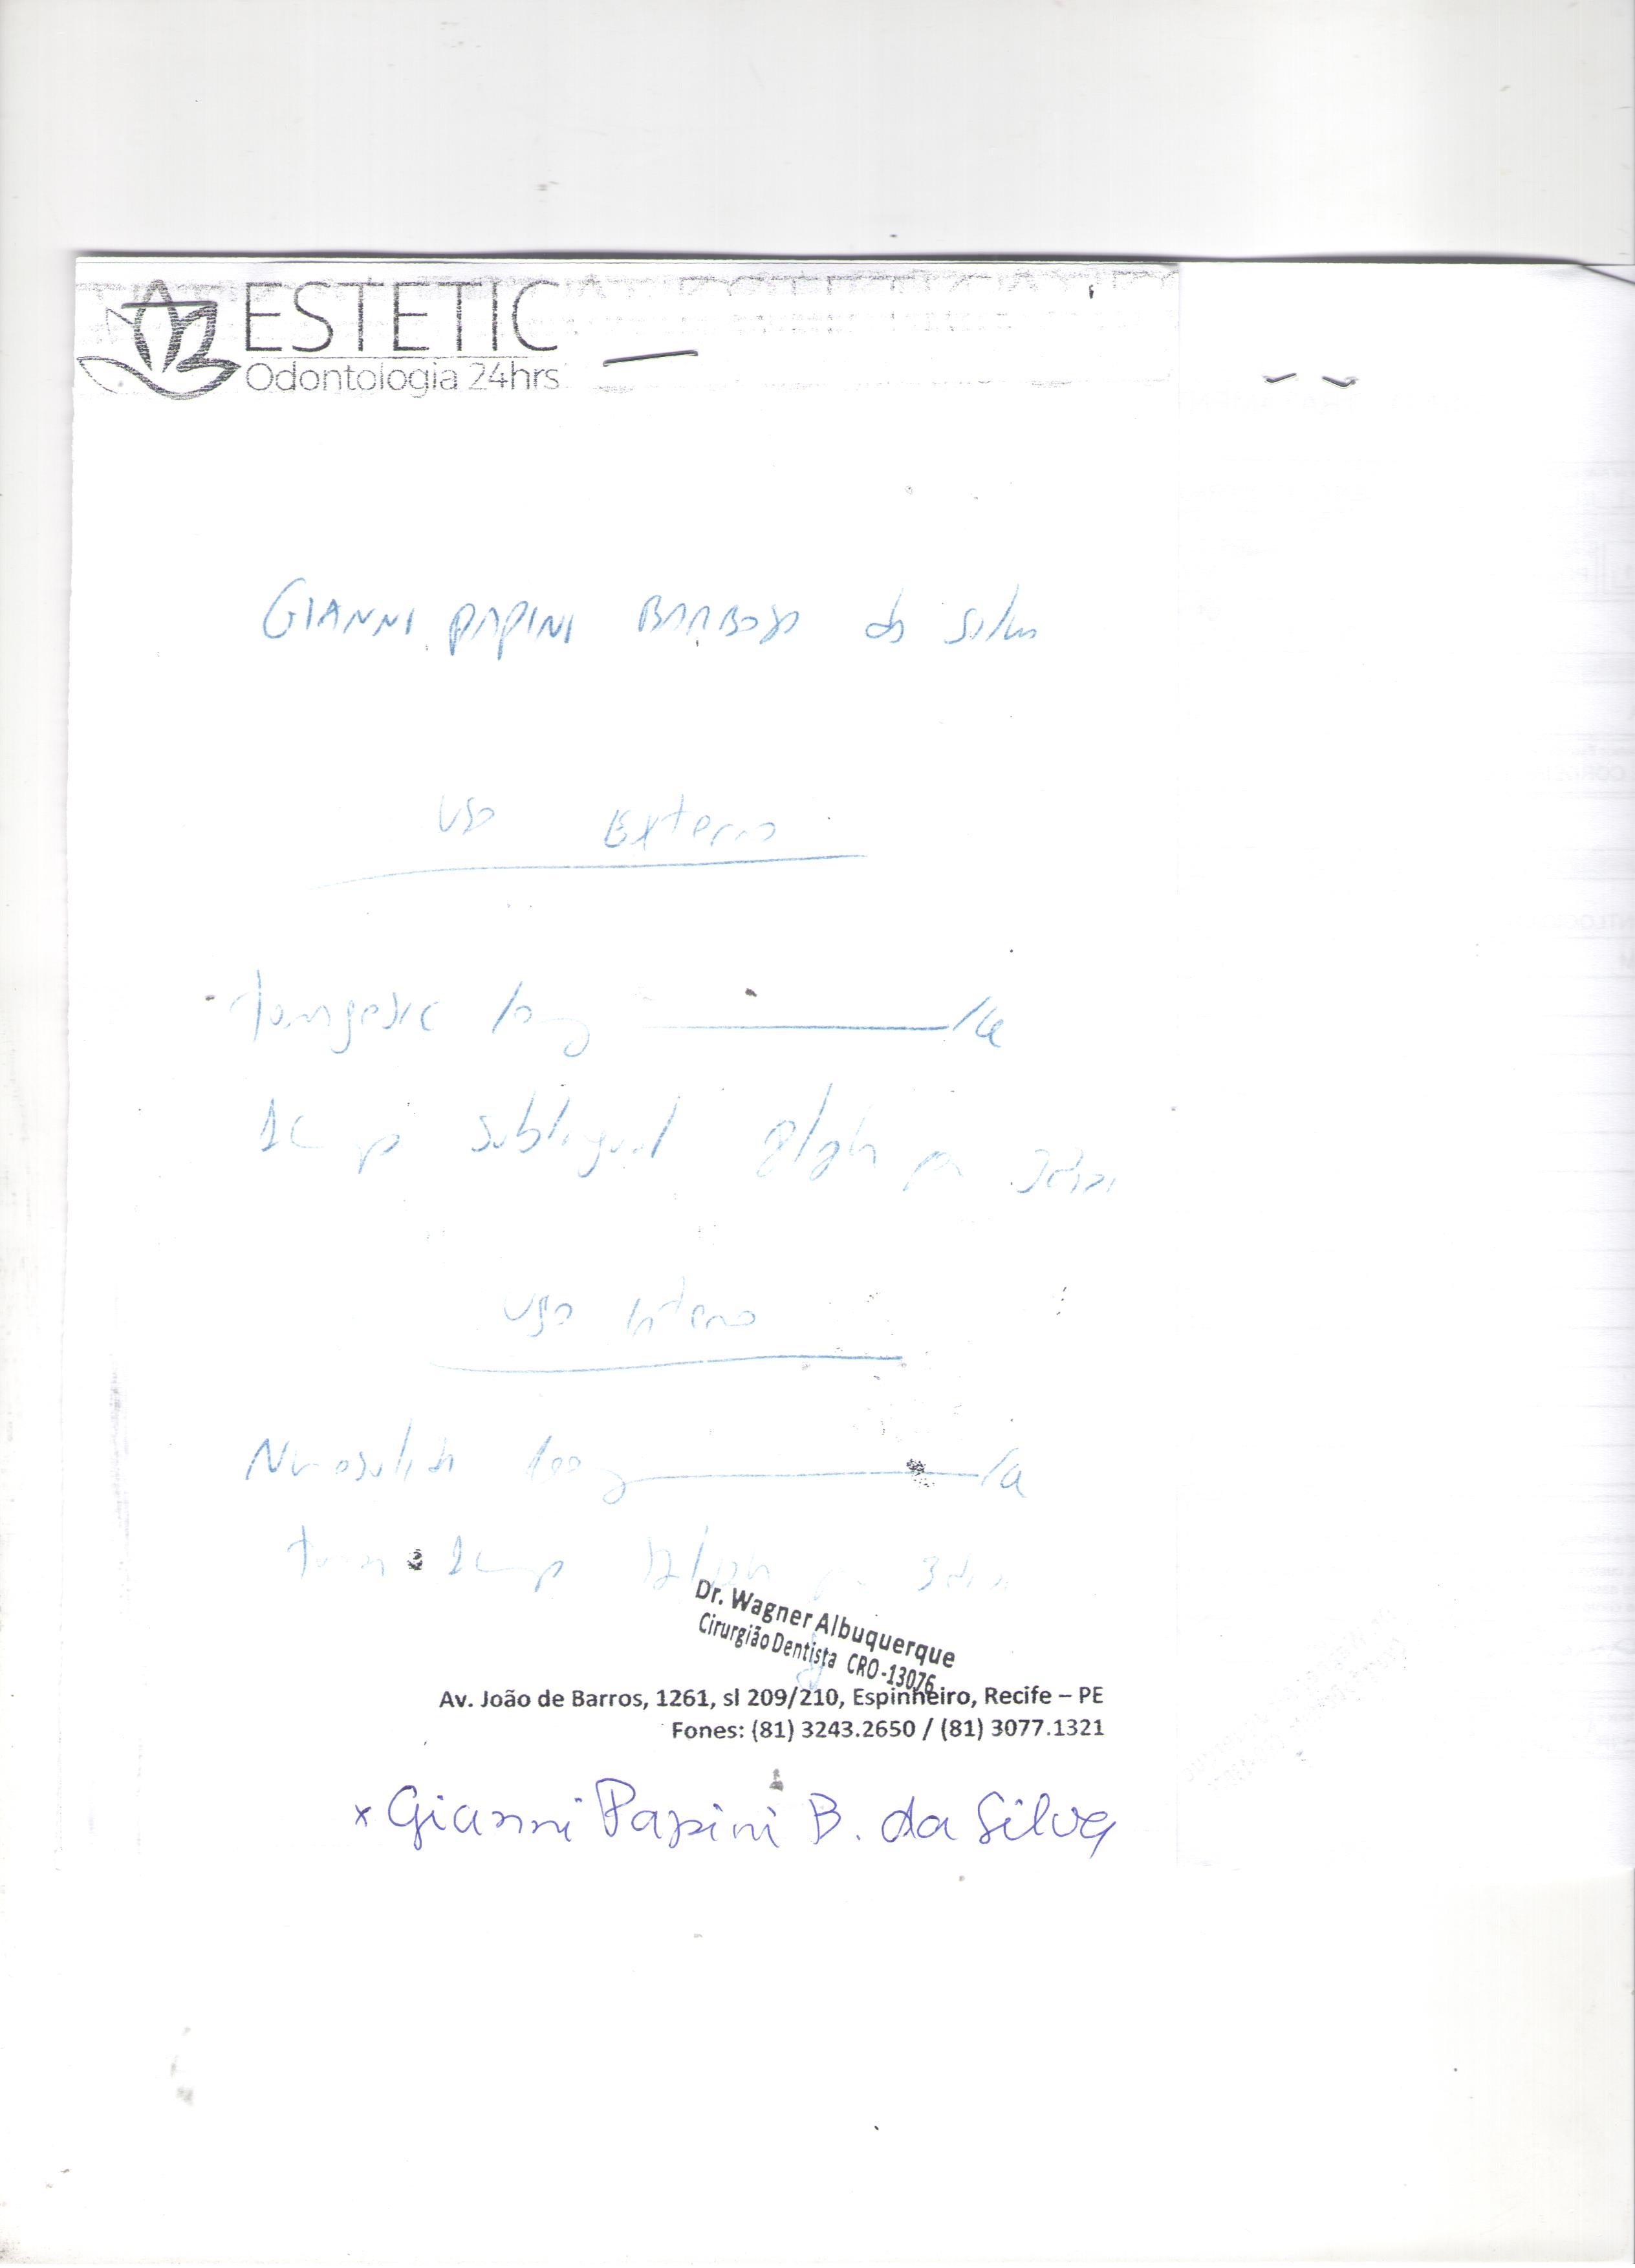 ESTETIC
Odontologia 24hrs
GIANNI PAPINI BARBOSA da Silva
Uso Externo
Toragesic 10mg /cx
1 comp sublingual 8/8h por 3 dias
Uso Interno
Nimesulida 100mg /cx
Tomar 1 comp 12/12h por 3 dias
Dr. Wagner Albuquerque
Cirurgião Dentista CRO-13076
Av. João de Barros, 1261, sl 209/210, Espinheiro, Recife – PE
Fones: (81) 3243.2650 / (81) 3077.1321
x Gianni Papini B. da Silva